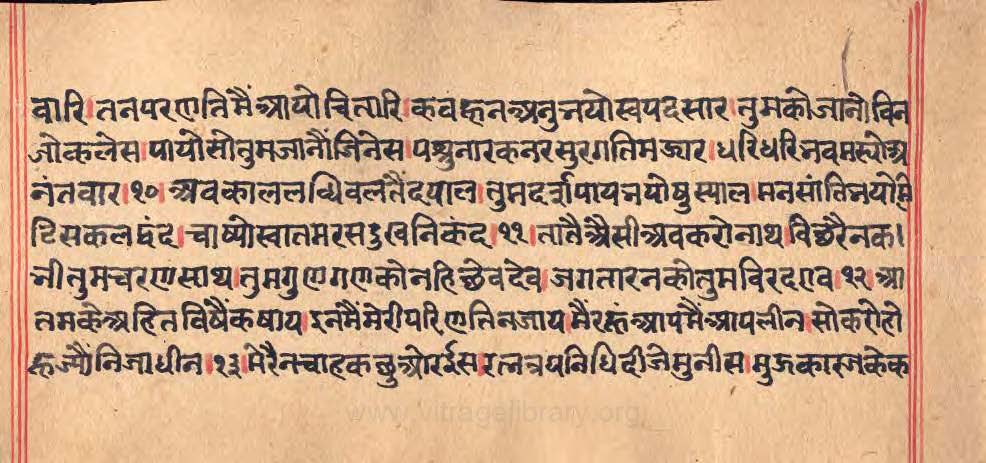 वारि।तनपरणतिमैंआपोचितारि।कवहूनअनुभयोस्वपदसार।तुमकोजानोंविन
जोकलेस।पायोसोतुमजानौंजिनेस।पशुनारकनरसुरगतिमझार।धरिधरिभवमर्योअ
नंतवार।१०।अवकाललब्धिवलतैंदयाल।तुमदर्शपायभयोषुस्याल।मनसांतिभयोमि
टिसकलद्वंद।चाष्योस्वातमरसदुखनिकंद।११।तातैंअैसीअवकरोनाथ।विछरैनक।
भीतुमचरणसाथ।तुमगुणगणकोनहिछेवदेव।जगतारनकोतुमविरदएव।१२।आ
तमकेअहितविषैंकषाय।इनमैंमेरीपरिणतिनजाय।मैंरहूंआपमैंआपलीन।सोकरोहो
हूज्यौंनिजाधीन।१३।मेरैनचाहकछुओरईस।रत्नत्रयनिधिदीजेमुनीस।मुझकारजकेक
www.vitragelibrary.org